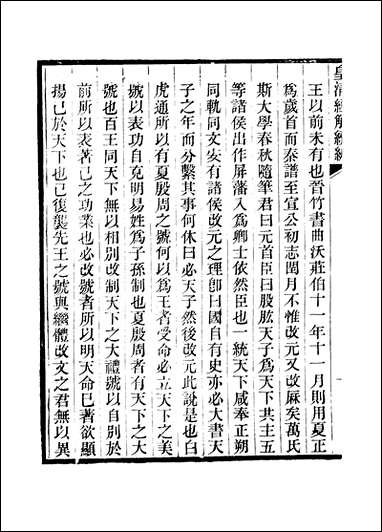 皇清經解續編
王以前未有也晉竹書曲沃莊伯十一年十一月則用夏正
爲歲首而秦譜至宣公初志閏月不惟改元又改厤矣萬氏
斯大學春秋隨筆君曰元首臣曰股肱天子爲天下共主五
等諸侯出作屏藩入爲卿士依然臣也一統天下咸奉正朔
同軌同文安有諸侯改元之理卽曰國自有史亦必大書天
子之年而分繫其事何休曰必天子然後改元此說是也白
虎通所以有夏殷周之號何以爲王者受命必立天下之美
號以表功自克明易姓爲子孫制也夏殷周者有天下之大
號也百王同天下無以相別改制天下之大禮號以自別於
前所以表著己之功業也必改號者所以明天命已著欲顯
揚己於天下也已復襲先王之號與繼體改文之君無以異